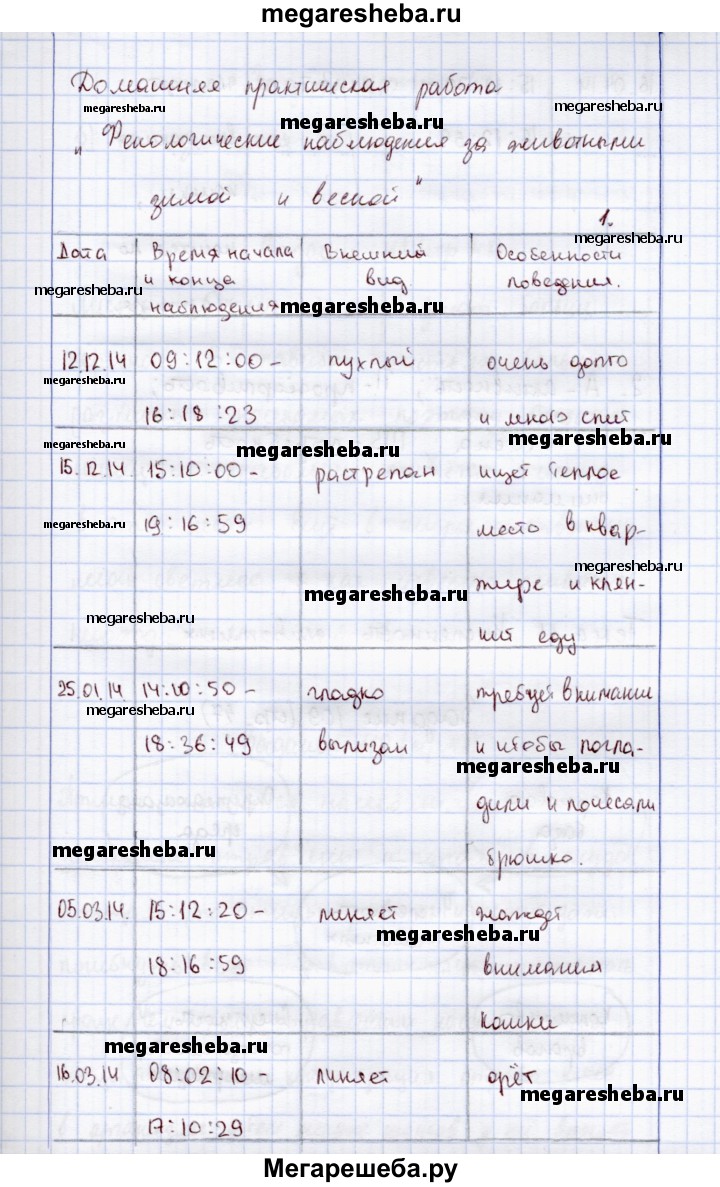 megaresheba.ru
Домашняя практическая работа
megaresheba.ru megaresheba.ru megaresheba.ru
"Фенологические наблюдения за животными
зимой и весной"
1.
Дата Время начала и конца наблюдения Внешний вид Особенности поведения.
megaresheba.ru megaresheba.ru
12.12.14 09:12:00- пухлый очень долго
megaresheba.ru
16:18:23 и много спит
megaresheba.ru
15.12.14. 15:10:00- растрепан ищет теплое
megaresheba.ru
19:16:59 место в квар-
megaresheba.ru
тире и клян-
megaresheba.ru
megaresheba.ru
чит еду.
25.01.14 14:10:50- гладко требует внимания
megaresheba.ru
18:36:49 вылизан и чтобы погла-
megaresheba.ru
дили и почесали
megaresheba.ru
брюшко.
05.03.14. 15:12:20- линяет жаждет
megaresheba.ru
18:16:59 внимания
кошки
megaresheba.ru
16.03.14 08:02:10- линяет орёт
megaresheba.ru
17:10:29
Мегарешеба.ру